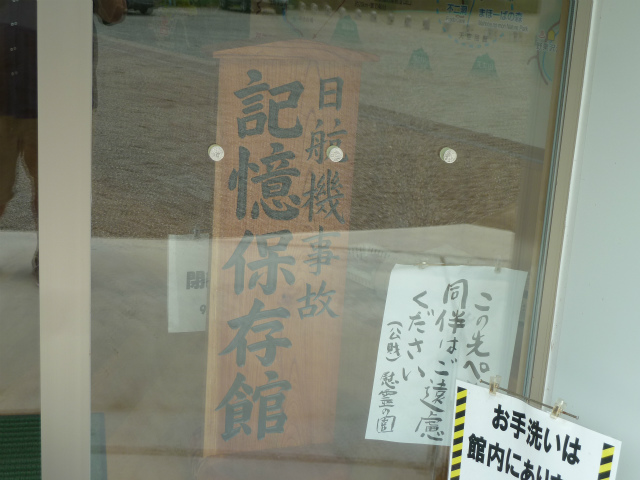 日航機事故
記憶保存館
この先ペ
同伴はご遠慮
ください
(公財) 慰霊の園
お手洗いは
館内にあり
閉
9